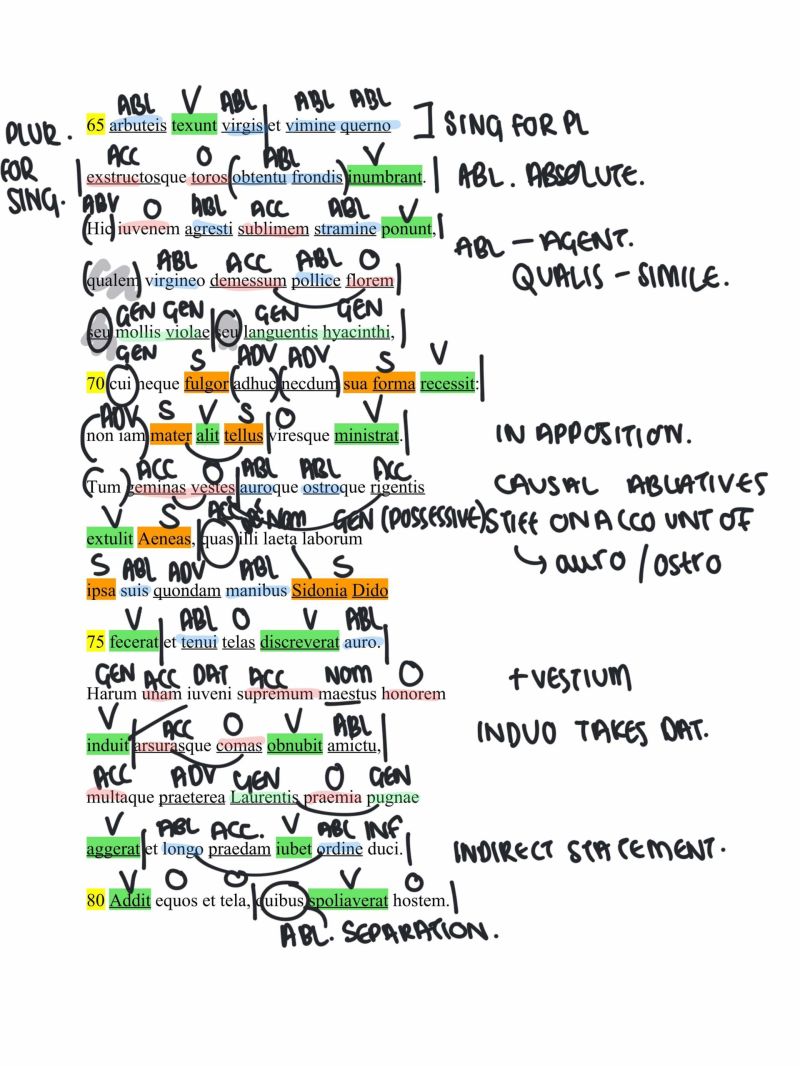 ABL V ABL ABL ABL
65 arbuteis texunt virgis et vimine querno ] SING FOR PL
PLUR.
FOR
SING.
ACC O ABL V
exstructosque toros obtentu frondis inumbrant. ABL. ABSOLUTE.
ABV O ABL ACC ABL V
Hic iuvenem agresti sublimem stramine ponunt,
ABL - AGENT.
QUALIS - SIMILE.
ABL ACC ABL O
qualem virgineo demessum pollice florem
GEN GEN GEN GEN
seu mollis violae seu languentis hyacinthi,
GEN S ADV ADV S V
70 cui neque fulgor adhuc necdum sua forma recessit:
ADV S V S O V
non iam mater alit tellus viresque ministrat. IN APPOSITION.
ACC O ABL ABL ACC
Tum geminas vestes auroque ostroque rigentis CAUSAL ABLATIVES
V S ACC NOM GEN (POSSESSIVE) STIFF ON ACCOUNT OF
extulit Aeneas, quas illi laeta laborum
↳ auro / ostro
S ABL ADV ABL S
ipsa suis quondam manibus Sidonia Dido
V ABL O V ABL.
75 fecerat et tenui telas discreverat auro.
GEN ACC DAT ACC NOM O
Harum unam iuveni supremum maestus honorem + VESTIUM
V ACC O V ABL
induit arsurasque comas obnubit amictu, INDUO TAKES DAT.
ACC ADV GEN O GEN
multaque praeterea Laurentis praemia pugnae
V ABL ACC. V ABL INF
aggerat et longo praedam iubet ordine duci. INDIRECT STATEMENT.
V O O V O
80 Addit equos et tela, quibus spoliaverat hostem.
ABL. SEPARATION.